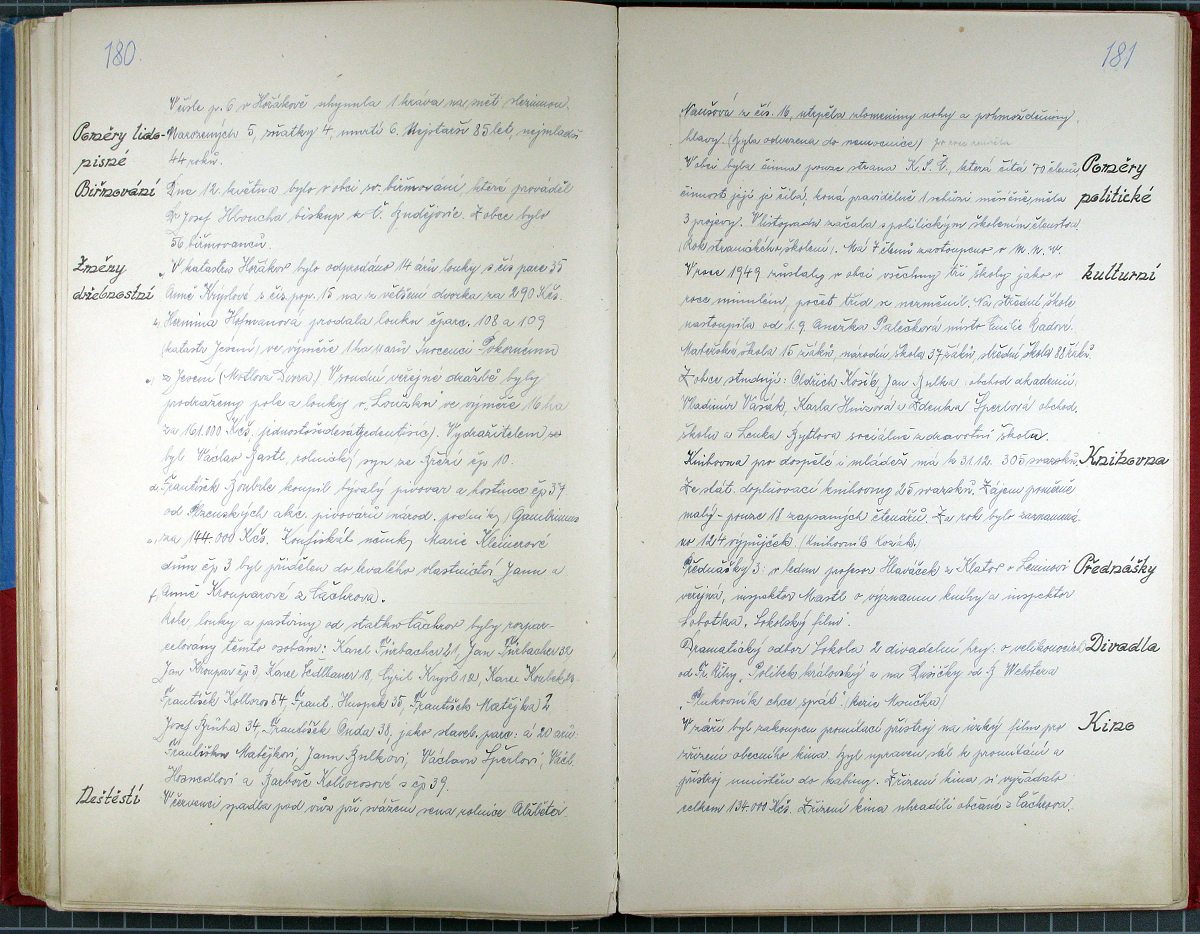 180.
V čísle p. 6 v Hořákově uhynula 1 kráva na
Poměry lido-
pisné
Narozených 5, sňatky 4, úmrtí 6. Nejstarší 85 let, nejmladší
44 roků.
Biřmování
Dne 12. května bylo v obci sv. biřmování které prováděl
Dr Josef Hloucha biskup z Č. Budějovic. Z obce bylo
56 biřmovanců.
Změny
držebnostní
V katastru Hořákov bylo odprodáno 14 arů louky s čís parc 35
Anně Kryslové s čís. pop. 15 na zvětšení dvorka za 290 Kčs.
Hermina Hofmanová prodala louku čparc. 108 a 109
(katastr Javení) ve výměře 1 ha arů Inocenci Pokornému
z Javení V soudní veřejné dražbě byly
podraženy pole a louky v "Loužku" ve výměře 16 ha
za 161.000 Kčs. jednostošedesátjedentisíc). Vydražitelem
byl Václav Bastl, rolnický syn ze Březí čp 10.
František Boubrle koupil bývalý pivovar a hostinec čp 37
od Plzeňských akc. pivovarů národ. podniky, Gambrinus
za 144.000 Kčs. Konfiskát němky Marie Kleinerové
dům čp 3 byl přidělen do trvalého vlastnictví Janu a
Anně Krouparové z Čachrova.
Pole louky a pastviny od statku Čachrov byly rozpar-
celovány těmto osobám: Karel Fürbacher 21, Jan Fürbacher 32
Jan Kroupar čp 3, Karel Sedlbauer 18, Cyril Krysl 12, Karel Koubek
František Kolloros 54, Frant. Huspek 35, František Matějka 2
Josef Brůha 34, František Onda 38, jako staveb. parc: á 20 arů:
Františku Matějkovi, Janu Bulkovi, Václavu Šperlovi, Václ.
Hosnedlovi a Barboře Kollorosové s čp 39.
Neštěstí
V červenci spadla pod vůz při svážení sena rolnice Alžběta
181
Naušová z čís. 16, utrpěla zlomeniny nohy a pohmoždeniny
hlavy. (Byla odvezena do nemocnice)
Poměry
politické
V obci byla činna pouze strana K.S.Č., která čítá 70 členů
činnost její je čilá, koná pravidelně 1 schůzi měsíčně, měla
3 projevy. V listopadu začala s politickým školením členstva
(Rok stranického školení). Má 7 členů zastoupeno v M.N.V.
kulturní
V roce 1949 zůstaly v obci všechny tři školy jako v
roce minulém, počet tříd se nezměnil. Na střední škole
nastoupila od 1.9. Anežka Palečková místo Emilie
Mateřská škola 15 žáků, národní škola 37 žáků, střední škola 88 žáků.
Z obce studují: Oldřich Kosík, Jan Bulka: obchod. akademii:
Vladimír Vasák, Karla Hnízdová a Zdenka Šperlová obchod.
školu a Lenka Bytlová sociálně zdravotní školu.
Knihovna
Knihovna pro dospělé i mládež má k 31.12. 305 svazků.
Ze stát. doplňovací knihovny 25 svazků. Zájem poměrně
malý - pouze 18 zapsaných čtenářů. Za rok bylo zaznamená-
no 124 výpůjček. (Knihovník Kozák.)
Přednášky
Přednášky 3: v lednu profesor Hlaváček z Klatov o Leninovi
veřejná, inspektor Mastl o významu knihy a inspektor
Sobotka, "Sokolský film".
Divadla
Dramatický odbor Sokola 2 divadelní hry: o velikonocích
od Fr. Říhy, "Polibek královský" a na Dušičky od Webstera
"Plukovník chce spát" (režie Moučka)
Kino
V září byl zakoupen promítací přístroj na úzký film pro
zřízení obecního kina. Byl upraven sál k promítání a
přístroj umístěn do kabiny. Zřízení kina si vyžádalo
celkem 134.000 Kčs. Zřízení kina uhradili občané z Čachrova.